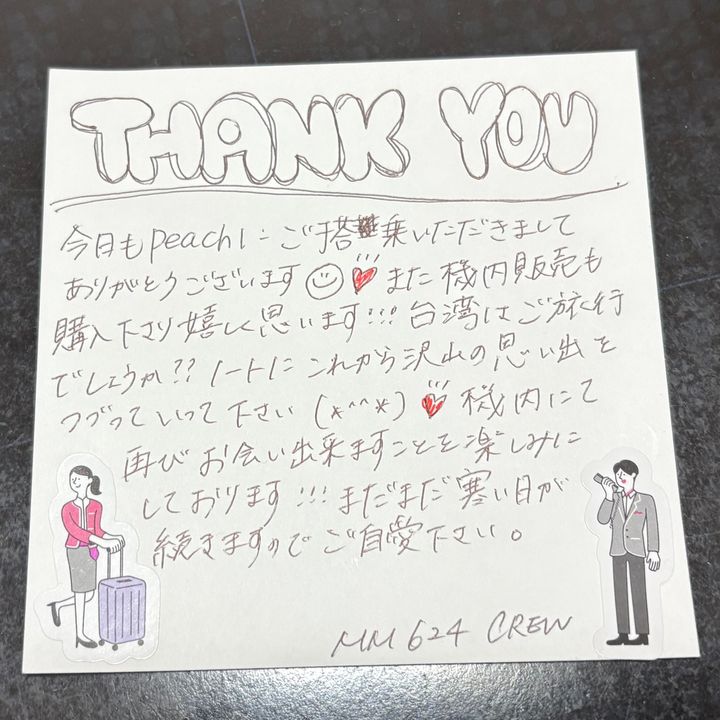 THANK YOU
今日もpeachにご搭乗いただきまして
ありがとうございます また機内販売も
購入下さり嬉しく思います!!! 台湾はご旅行
でしょうか?? ノートにこれから沢山の思い出を
つづっていって下さい (*^^*) 機内にて
再びお会い出来ますことを楽しみに
しております!!! まだまだ寒い日が
続きますのでご自愛下さい。
MM 624 CREW